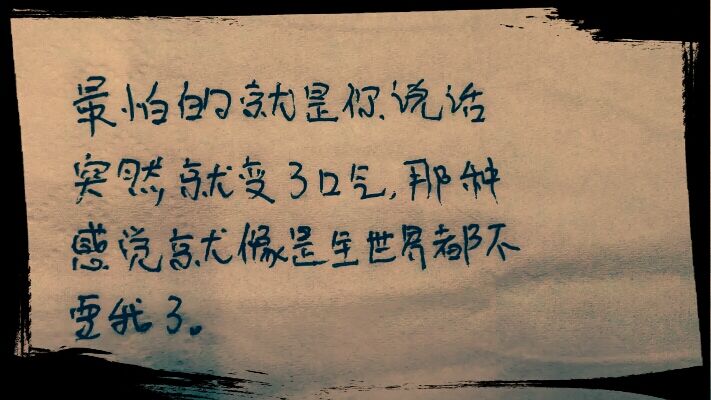 最怕的就是你说话
突然就变了口气,那种
感觉就像是全世界都不
要我了。